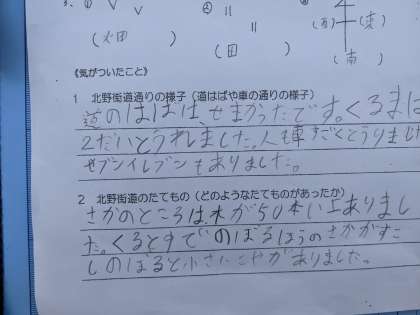 (火田 )
(田 )
(西) (東)
(南)
《気がついたこと》
1 北野街道通りの様子(道はばや車の通りの様子)
道のはばは、せまかったです。くるまは
2だいとうれました。人も車すごくとうりました
セブンイレブンもありました。
2 北野街道のたてもの(どのようなたてものがあったか)
さかのところは、木が50本い上ありまし
た。くるとすぐ のぼるほうのさかがすこ
しのぼると小さいこやがありました。